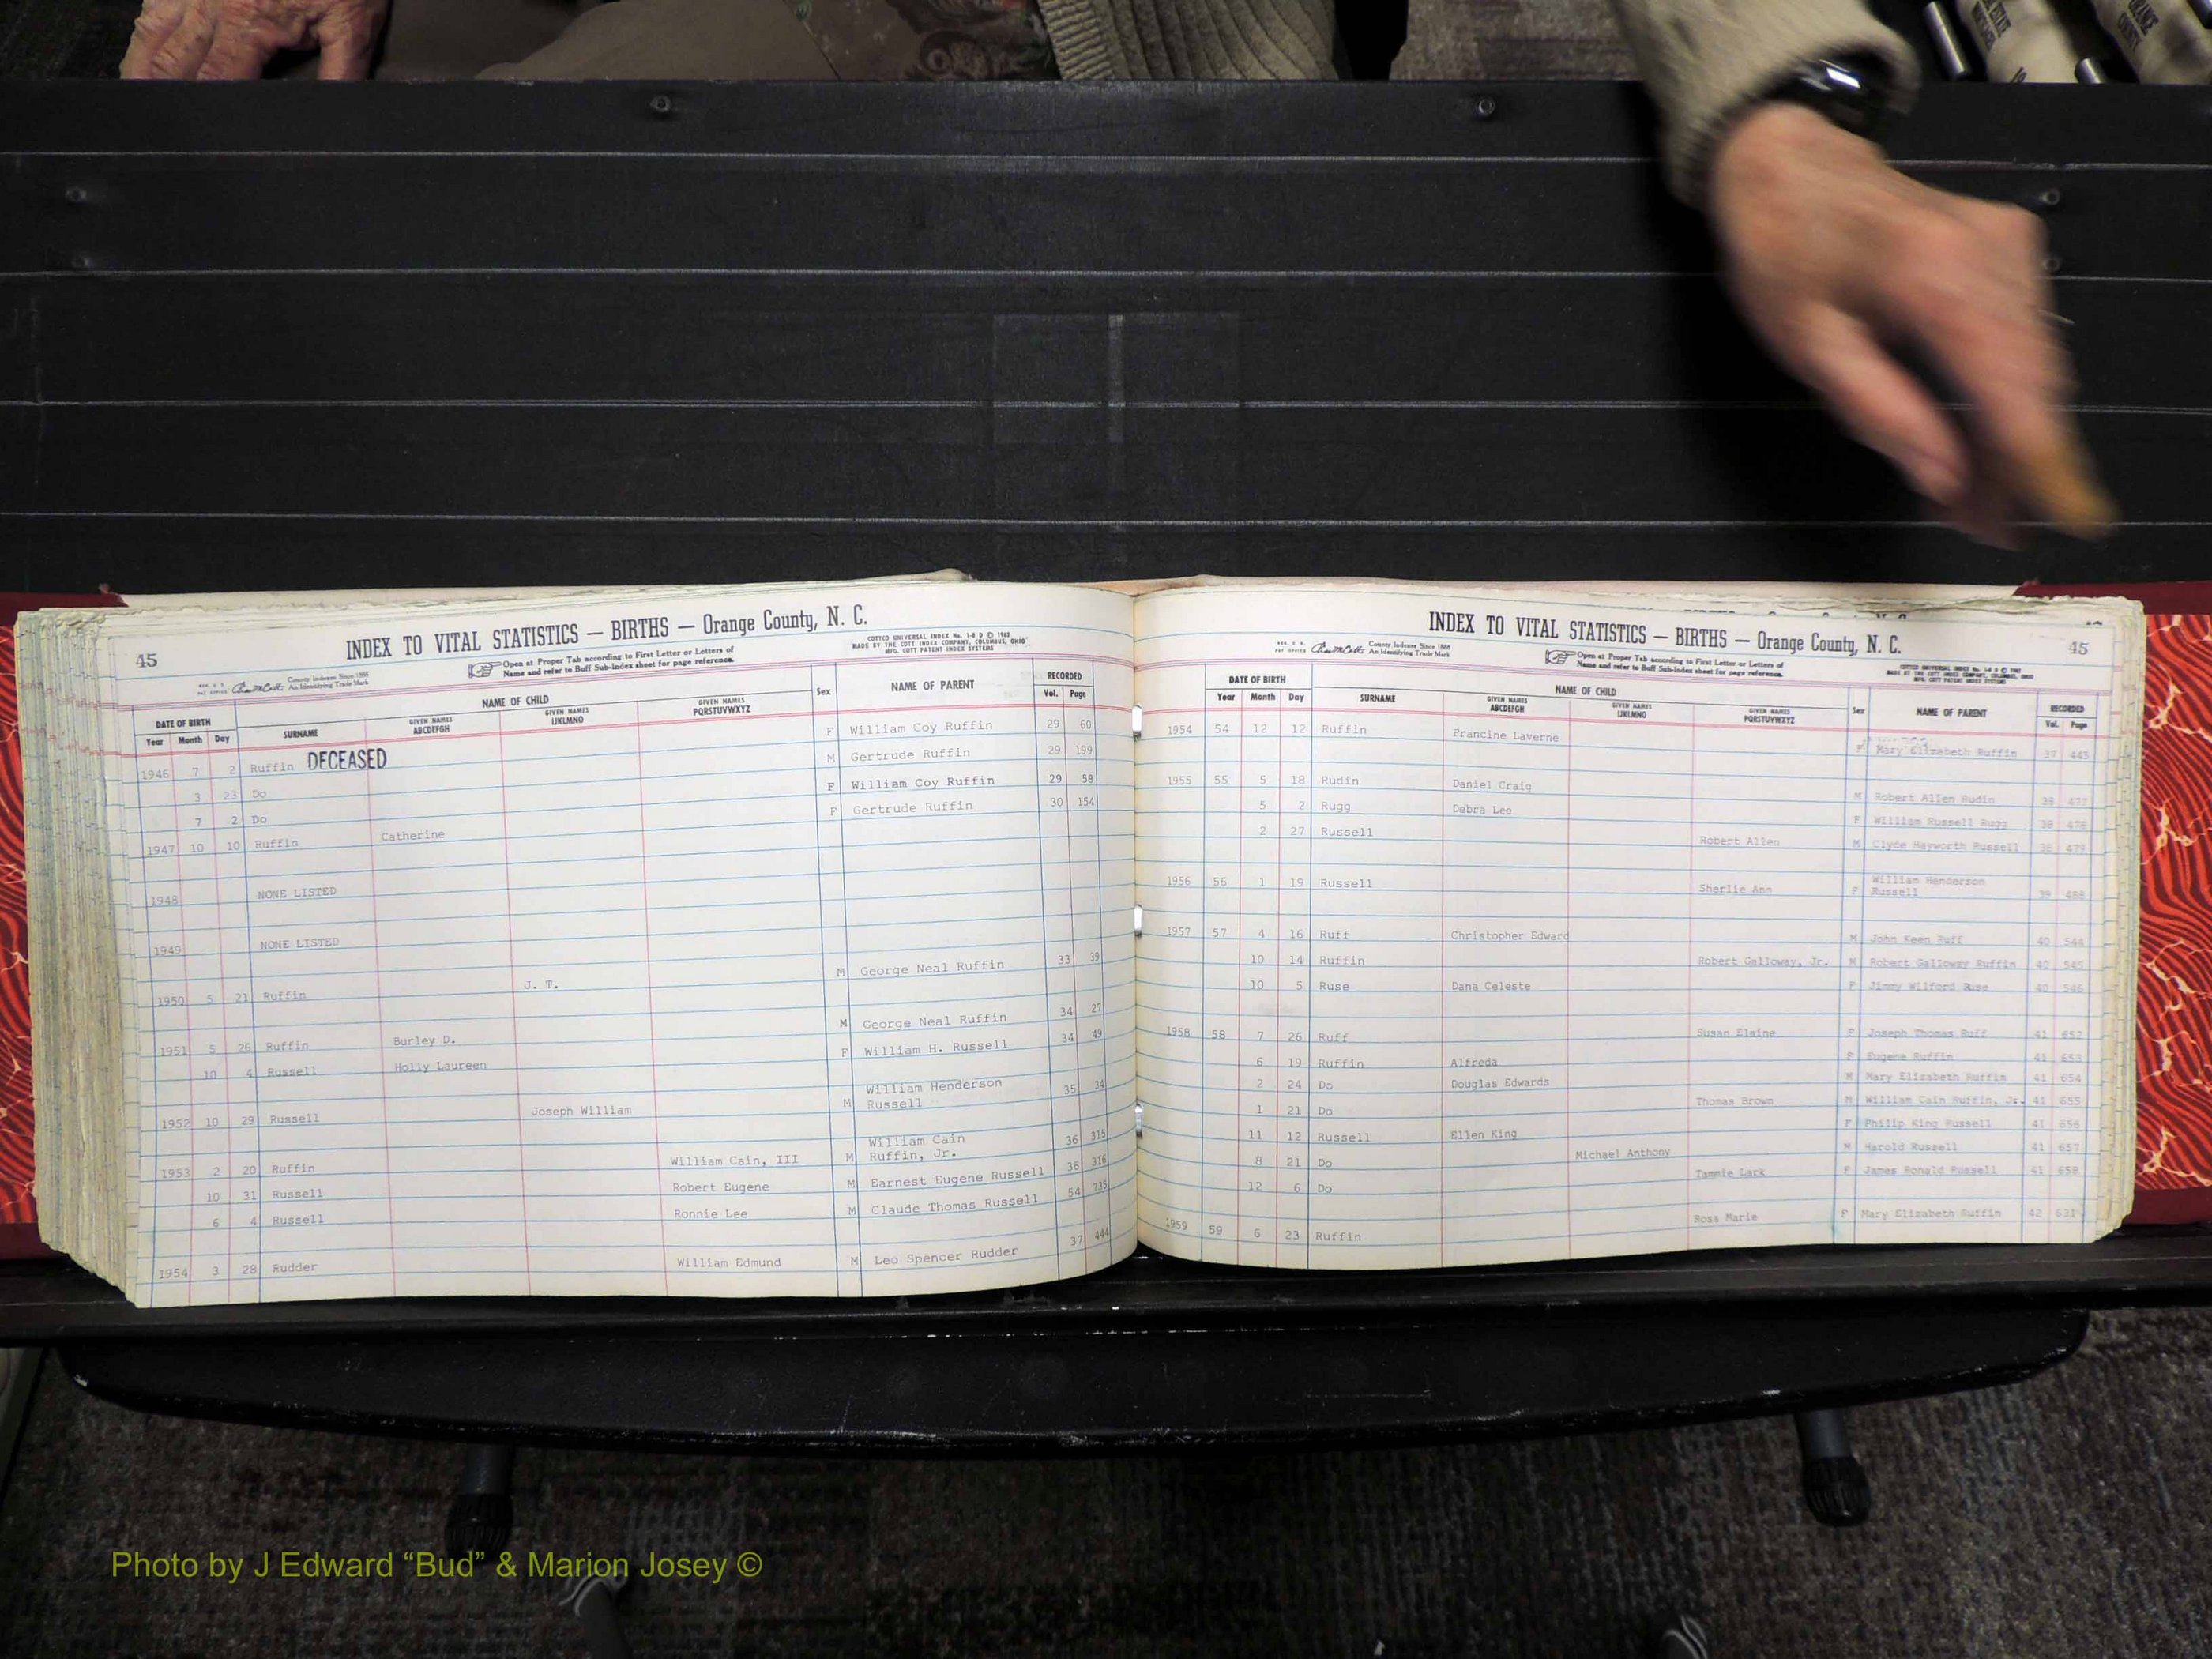 45
INDEX TO VITAL STATISTICS — BIRTHS — Orange County, N. C.
COTTCO UNIVERSAL INDEX No. 1-8 D © 1962
MADE BY THE COTT INDEX COMPANY, COLUMBUS, OHIO
MFG. COTT PATENT INDEX SYSTEMS
County Indexes Since 1888
An Identifying Trade Mark
Open at Proper Tab according to First Letter or Letters of
Name and refer to Buff Sub-Index sheet for page reference.
DATE OF BIRTH NAME OF CHILD Sex NAME OF PARENT RECORDED
Year Month Day SURNAME GIVEN NAMES ABCDEFGH GIVEN NAMES IJKLMNO GIVEN NAMES PQRSTUVWXYZ Vol. Page
1946 7 2 Ruffin DECEASED F William Coy Ruffin 29 60
3 23 Do M Gertrude Ruffin 29 199
7 2 Do F William Coy Ruffin 29 58
1947 10 10 Ruffin Catherine F Gertrude Ruffin 30 154
1948 NONE LISTED
1949 NONE LISTED
1950 5 21 Ruffin J. T. M George Neal Ruffin 33 39
1951 5 26 Ruffin Burley D. M George Neal Ruffin 34 27
10 4 Russell Holly Laureen F William H. Russell 34 49
1952 10 29 Russell Joseph William M William Henderson Russell 35 34
1953 2 20 Ruffin William Cain, III M William Cain Ruffin, Jr. 36 315
10 31 Russell Robert Eugene M Earnest Eugene Russell 36 316
6 4 Russell Ronnie Lee M Claude Thomas Russell 54 735
1954 3 28 Rudder William Edmund M Leo Spencer Rudder 37 444
INDEX TO VITAL STATISTICS — BIRTHS — Orange County, N. C.
45
County Indexes Since 1888
An Identifying Trade Mark
Open at Proper Tab according to First Letter or Letters of
Name and refer to Buff Sub-Index sheet for page reference.
DATE OF BIRTH NAME OF CHILD Sex NAME OF PARENT RECORDED
Year Month Day SURNAME GIVEN NAMES ABCDEFGH GIVEN NAMES IJKLMNO GIVEN NAMES PQRSTUVWXYZ Vol. Page
1954 54 12 12 Ruffin Francine Laverne F Mary Elizabeth Ruffin 37 445
1955 55 5 18 Rudin Daniel Craig M Robert Allen Rudin 38 477
5 2 Rugg Debra Lee F William Russell Rugg 38 478
2 27 Russell Robert Allen M Clyde Hayworth Russell 38 479
1956 56 1 19 Russell Sherlie Ann F William Henderson Russell 39 488
1957 57 4 16 Ruff Christopher Edward M John Keen Ruff 40 544
10 14 Ruffin Robert Galloway, Jr. M Robert Galloway Ruffin 40 545
10 5 Ruse Dana Celeste F Jimmy Wilford Ruse 40 546
1958 58 7 26 Ruff Susan Elaine F Joseph Thomas Ruff 41 652
6 19 Ruffin Alfreda F Eugene Ruffin 41 653
2 24 Do Douglas Edwards M Mary Elizabeth Ruffin 41 654
1 21 Do Thomas Brown M William Cain Ruffin, Jr. 41 655
11 12 Russell Ellen King F Philip King Russell 41 656
8 21 Do Michael Anthony M Harold Russell 41 657
12 6 Do Tammie Lark F James Ronald Russell 41 658
1959 59 6 23 Ruffin Rosa Marie F Mary Elizabeth Ruffin 42 631
Photo by J Edward “Bud” & Marion Josey ©